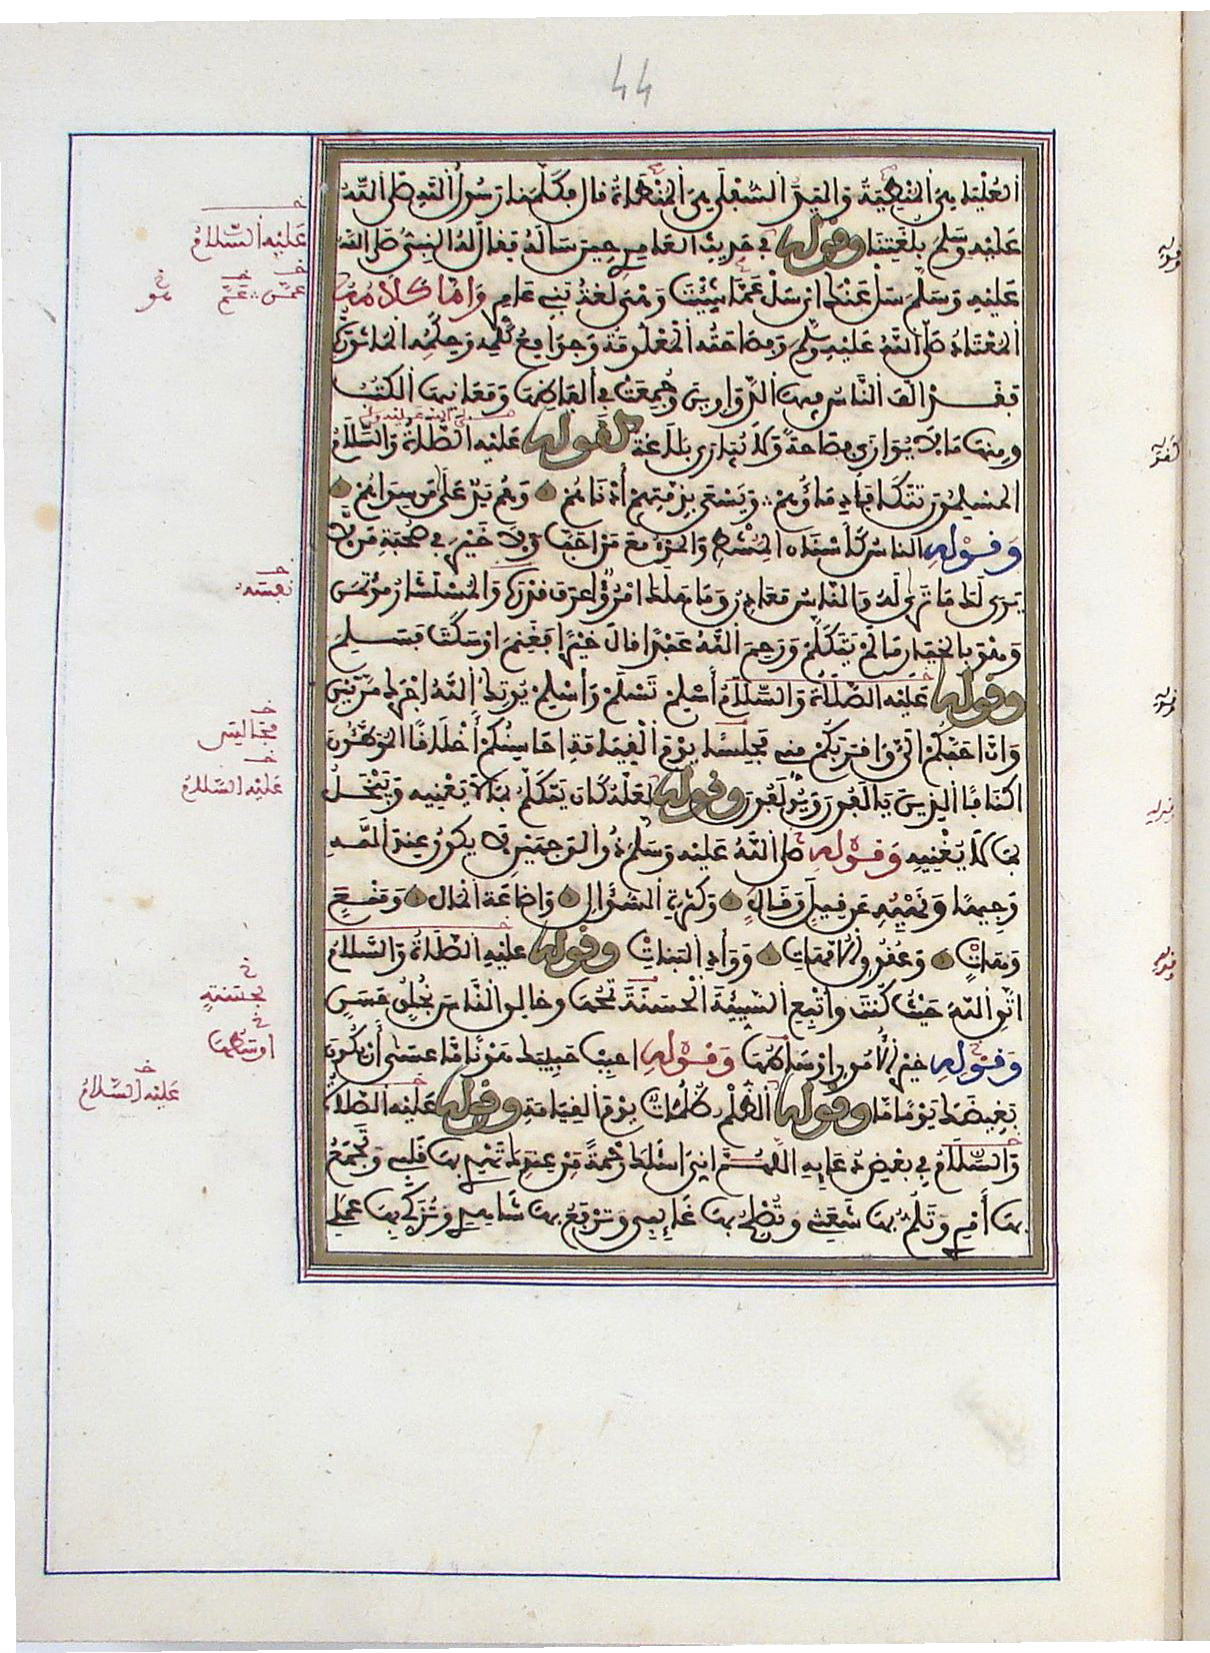 44
العُلْيَا هِيَ المُنْطِيَةُ وَاليَدُ السُّفْلَى هِيَ المُنْطَاةُ قال فكلمنا رَسُولُ الله صَلَّى اللَّهُ
عَلَيْهِ وَسَلَّمَ بلغتنا وقوله في حَدِيثِ العَامِرِي حِينَ سَأَلَهُ فقال لَهُ النبيُّ صَلَّى اللهُ
عَلَيْهِ وَسَلَّمَ سَلْ عَنْكَ أي سَلْ عَمَّا شِئْتَ وَهْيَ لُغَةُ بَنِي عَامِرٍ وَأَمَّا كَلَامُهُ
المُعْتَادُ صَلَّى اللهُ عَلَيْهِ وَسَلَّمَ وَفَصَاحَتُهُ المَعْلُومَةُ وَجَوَامِعُ كَلِمِهِ وَحِكَمُهُ المَأْثُورَةُ
فَقَدْ ألَّف النَّاسُ فيها الدَّوَاوِينَ وَجُمِعَتْ فِي ألفَاظِهَا وَمَعَانِيهَا الكُتُبُ
ومنها مَا لَا يُوَازَى فصَاحَةً وَلَا يُبَارَى بَلَاغَةً كقوله عَلَيْهِ الصَّلَاةُ وَالسَّلَامُ
المُسْلِمُونَ تَتَكَافَأُ دِمَاؤُهُمْ وَيَسْعَى بِذِمَّتِهِمْ أَدْنَاهُمْ وَهُمْ يَدٌ عَلَى مَنْ سِوَاهُمْ
وَقَوْلِهِ الناسُ كَأَسْنَانِ المُشْطِ وَالمَرْءُ مَعَ مَنْ أَحَبَّ وَلَا خَيْرَ فِي صُحْبَةِ مَنْ لَا
يَرَى لَكَ مَا تَرَى لَهُ وَالنَّاسُ مَعَادِنُ وَمَا هَلَكَ امْرُؤٌ عَرَفَ قَدْرَهُ وَالمُسْتَشَارُ مُؤْتَمَنٌ
وَهْوَ بِالخِيَارِ مَا لَمْ يَتَكَلَّمْ وَرَحِمَ اللَّهُ عَبْدًا قَالَ خَيْرًا فَغَنِمَ أَوْ سَكَتَ فَسَلِمَ
وقوله عَلَيْهِ الصَّلَاةُ وَالسَّلَامُ أَسْلِمْ تَسْلَمْ وَأَسْلِمْ يُؤْتِكَ اللَّهُ أَجْرَكَ مَرَّتَيْنِ
وَإِنَّ أَحَبَّكُمْ إِلَيَّ وَأَقْرَبَكُمْ مِنِّي مَجْلِسًا يَوْمَ الْقِيَامَةِ أَحَاسِنُكُمْ أَخْلَاقًا المُوَطَّئُونَ
أَكْنَافًا الذِينَ يَأْلَفُونَ وَيُؤْلَفُونَ وقوله لَعَلَّهُ كَانَ يَتَكَلَّمُ بِمَا لَا يَعْنِيهِ وَيَبْخَلُ
بمَا لَا يُغْنِيهِ وَقَوْلِهِ صَلَّى اللَّهُ عَلَيْهِ وَسَلَّمَ ذُو الوَجْهَيْنِ لَا يَكُونُ عِنْدَ اللهِ
وَجِيهًا وَنَهْيِهِ عَن قِيلَ وَقَالَ وَكَثْرَةِ السُّؤَالِ وَإِضَاعَةِ المَالِ وَمَنْعٍ
وَهَاتِ وَعُقُوقِ الأُمَّهَاتِ وَوَأْدِ البَنَاتِ وقوله عَلَيْهِ الصَّلَاةُ وَالسَّلَامُ
اتَّقِ اللَّهَ حَيْثُ كُنْتَ وَأَتْبِعِ السَّيِّئَةَ الْحَسَنَةَ تَمْحُهَا وَخَالِقِ النَّاسَ بِخُلُقٍ حَسَنٍ
وَقَوْلِهِ خَيْرُ الأُمُورِ أَوْسَاطُهَا وَقَوْلِهِ أَحْبِبْ حَبِيبَكَ هَوْنًا مَّا عَسَى أَنْ يَكُونَ
بَغِيضَكَ يَوْمًا مَّا وقوله الظُّلْمُ ظُلُمَاتٌ يَوْمَ القِيَامَةِ وقوله عَلَيْهِ الصَّلَاةُ
وَالسَّلَامُ فِي بَعْضِ دُعَائِهِ اللَّهُمَّ إِنِّي أَسْأَلُكَ رَحْمَةً مِنْ عِنْدِكَ تَهْدِي بِهَا قَلْبِي وَتَجْمَعُ
بِهَا أَمْرِي وَتَلُمُّ بِهَا شَعَثِي وَتُصْلِحُ بِهَا غَائِبِي وَتَرْفَعُ بِهَا شَاهِدِي وَتُزَكِّي بِهَا عَمَلِي
عَلَيْهِ السَّلَامُ
عَمَّنْ
عَمَّ
هو
نَفْسَهُ
مَجَالِسَ
عَلَيْهِ السَّلَامُ
بِحَسَنَةٍ
أَوْسَطُهَا
عَلَيْهِ السَّلَامُ